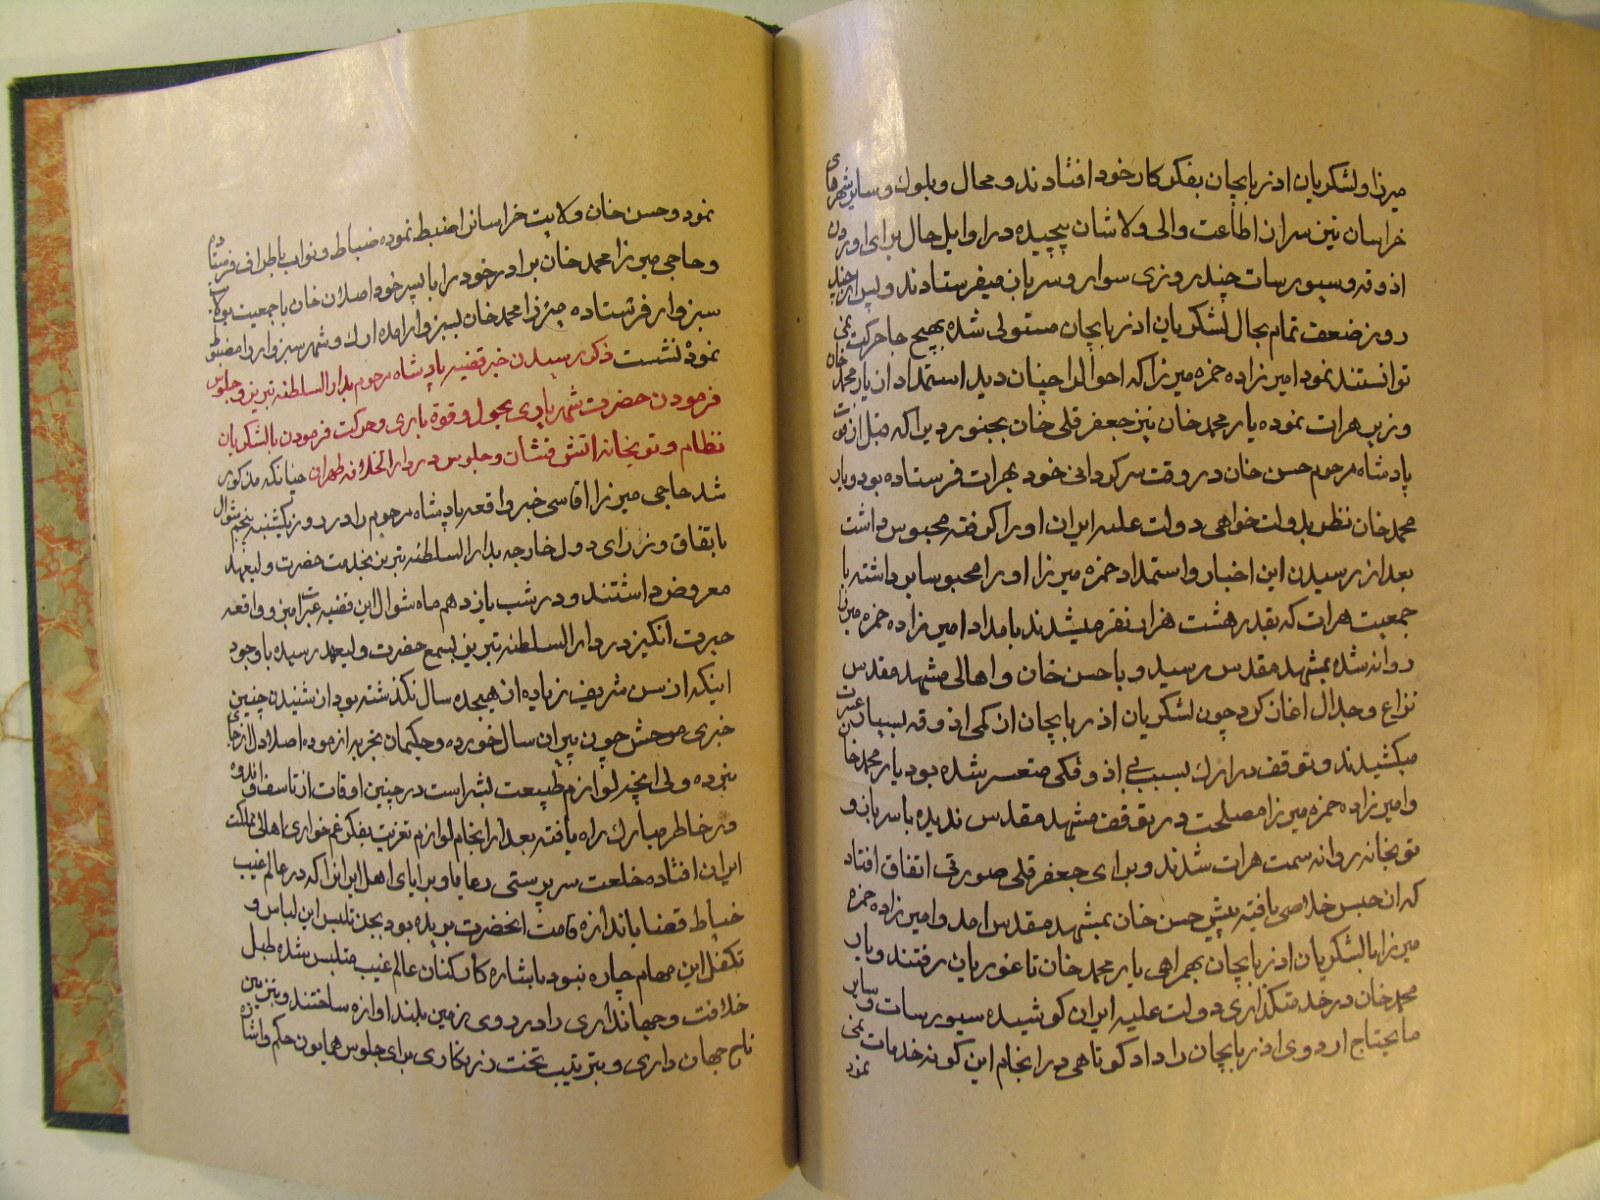 میرزا و لشکریان اذربایجان بفکر کار خود افتادند و محال و بلوک و سایر شهرهای
خراسان نیز سر از اطاعت والی و لاشان پیچیده در اوایل حال برای اوردن
اذوقه و سیورسات چند روزی سوار و سرباز میفرستادند و پس از چند
روز ضعف تمام بحال لشکریان اذربایجان مستولی شده بهیچ جا حرکت نمی
توانستند نمود امیرزاده حمزه میرزا که احوال را چنان دید استمداد از یار محمد خان
وزیر هرات نموده یار محمد خان نیز جعفر قلی خان بجنوردیرا که قبل از فوت
پادشاه مرحوم حسن خان در وقت سرکردانی خود بهرات فرستاده بود و یار
محمد خان نظر بدولت خواهی دولت علیه ایران او را کرفته محبوس داشت
بعد از رسیدن این اخبار و استمداد حمزه میرزا او را محبوسا برداشته با
جمعیت هرات که بقدر هشت هزار نفر میشدند بامداد امیرزاده حمزه میرزا
روانه شده بمشهد مقدس رسید و با حسن خان و اهالی مشهد مقدس
نزاع و جدال اغاز کرد چون لشکریان اذربایجان از کمی اذوقه بسیار عسرت
میکشیدند و توقف در ارک بسبب بی اذوقکی متعسر شده بود یار محمد خان
و امیرزاده حمزه میرزا مصلحت در توقف مشهد مقدس ندیده با سرباز و
توپخانه روانه سمت هرات شدند و برای جعفر قلی صورتی اتفاق افتاد
که از حبس خلاصی یافته پیش حسن خان بمشهد مقدس امد و امیرزاده حمزه
میرزا با لشکریان اذربایجان بهمراهی یار محمد خان تا غوریان رفتند و یار
محمد خان در خدمتکذاری دولت علیه ایران کوشیده سیورسات و سایر
مایحتاج اردوی اذربایجان را داد کوتاهی در انجام این کونه خدمات نمی
نمود
نمود و حسن خان ولایت خراسانرا ضبط نموده ضباط و نواب باطراف فرستاده
و حاجی میرزا محمد خان برادر خود را با پسر خود اصلان خان با جمعیت
سبزوار فرستاده میرزا محمد خان بسبزوار امده ارک و شهر سبزوار را مضبوط
نموده نشست ذکر رسیدن خبر قضیه پادشاه مرحوم بدار السلطنه تبریز و جلوس
فرمودن حضرت شهریاری بحول و قوة باری و حرکت فرمودن با لشکریان
نظام و توپخانه اتش فشان و جلوس در دار الخلافه طهران چنانکه مذکور
شد حاجی میرزا اقاسی خبر واقعه پادشاه مرحوم را در روز یکشنبه پنجم شوال
باتفاق وزرای دول خارجه بدار السلطنه تبریز بخدمت حضرت ولیعهد
معروض داشتند و در شب یازدهم ماه شوال این قضیه عبرت امیز و واقعه
حیرت انکیز در دار السلطنه تبریز بسمع حضرت ولیعهد رسیده با وجود
اینکه از سن شریف زیاده از هیجده سال نکذشته بود از شنیدن چنین
خبری موحش چون پیران سال خورده و حکیمان تجربه ازموده اصلا دل از جای
نبرده ولی انچه لوازم طبیعت بشر است در چنین اوقات از تاسف و اندوه
در خاطر مبارک راه یافته بعد از انجام لوازم تعزیت بفکر غم خواری اهالی مملکت
ایران افتاده خلعت سرپرستی رعایا و برایای اهل ایرانرا که در عالم غیب
خیاط قضا باندازه قامت انحضرت بریده بود بجز تلبس این لباس و
تکفل این مهام چاره نبود باشاره کارکنان عالم غیب متلبس شده طبل
خلافت و جهانداری را در روی زمین بلند اوازه ساختند و بتزیین
تاج جهان داری و بترتیب تخت زرنکاری برای جلوس همایون حکم و اشاره